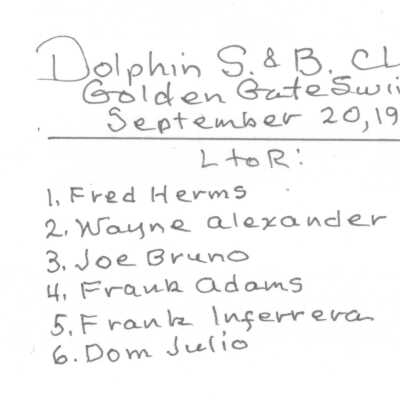 Dolphin S. & B. CL
Golden Gate Swi
September 20, 19
L to R:
1. Fred Herms
2. Wayne alexander
3. Joe Bruno
4. Frank adams
5. Frank Inferrera
6. Dom Julio